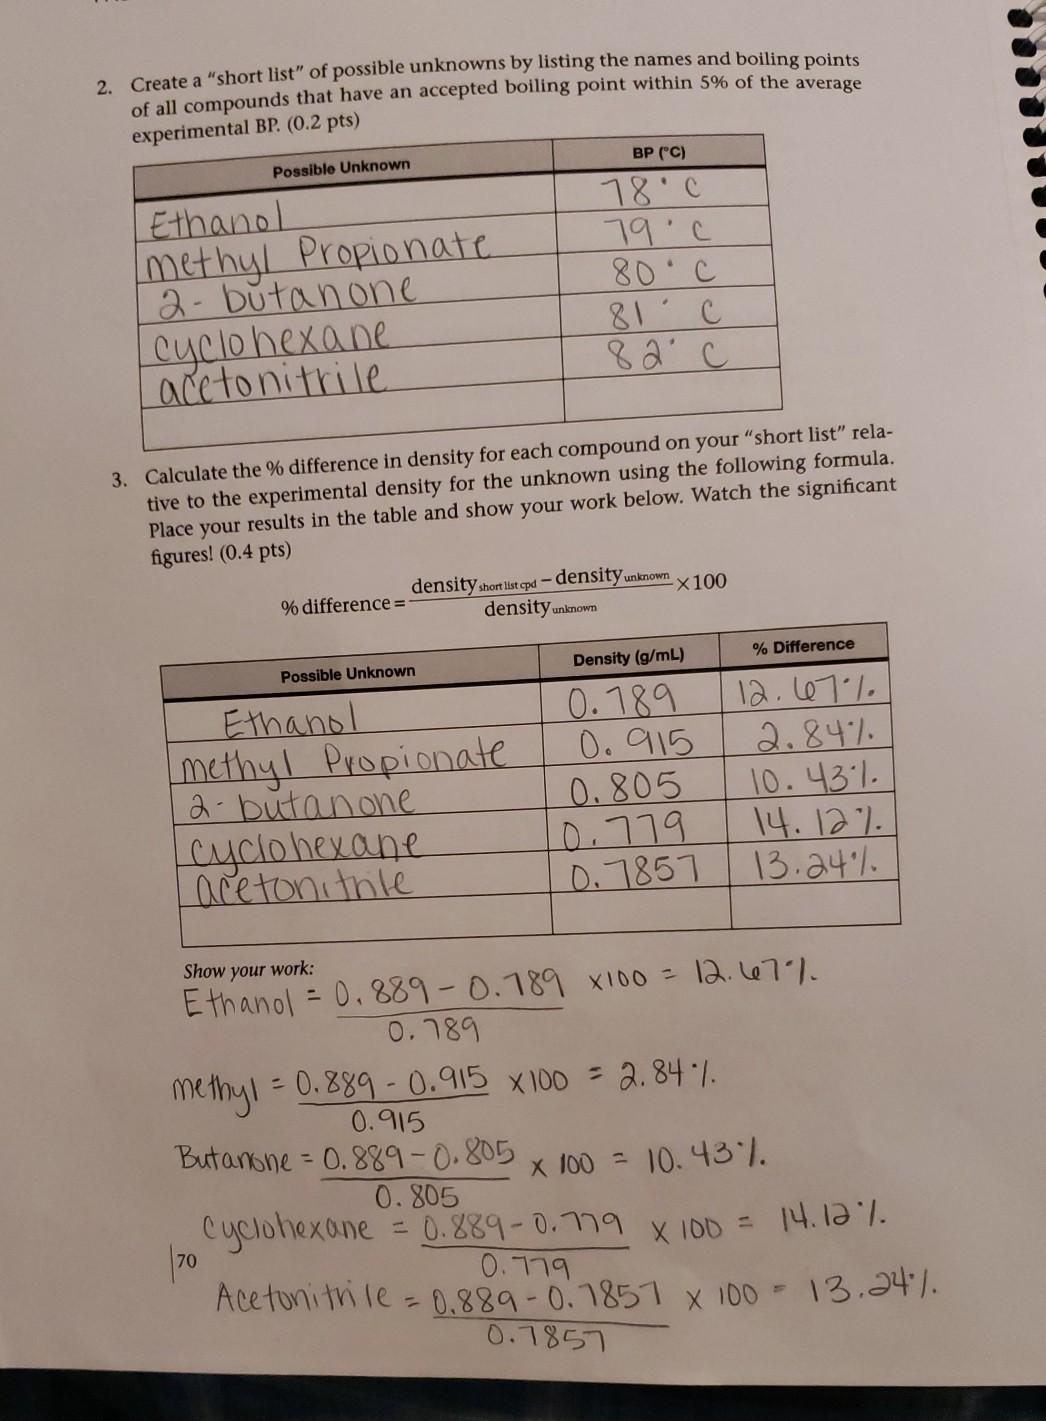 2. Create a “short list” of possible unknowns by listing the names and boiling points
of all compounds that have an accepted boiling point within 5% of the average
experimental BP. (0.2 pts)
Possible Unknown BP (°C)
Ethanol 78°C
methyl Propionate 79°C
2-butanone 80°C
cyclohexane 81°C
acetonitrile 82°C
3. Calculate the % difference in density for each compound on your “short list” rela-
tive to the experimental density for the unknown using the following formula.
Place your results in the table and show your work below. Watch the significant
figures! (0.4 pts)
% difference = (density short list cpd − density unknown) / density unknown × 100
Possible Unknown Density (g/mL) % Difference
Ethanol 0.789 12.67%
methyl Propionate 0.915 2.84%
2-butanone 0.805 10.43%
cyclohexane 0.779 14.12%
acetonitrile 0.7857 13.24%
Show your work:
Ethanol = 0.889 - 0.789 x100 = 12.67%
0.789
methyl = 0.889 - 0.915 x100 = 2.84%
0.915
Butanone = 0.889 - 0.805 x 100 = 10.43%
0.805
Cyclohexane = 0.889 - 0.779 x 100 = 14.12%
0.779
170
Acetonitrile = 0.889 - 0.7857 x 100 = 13.24%
0.7857